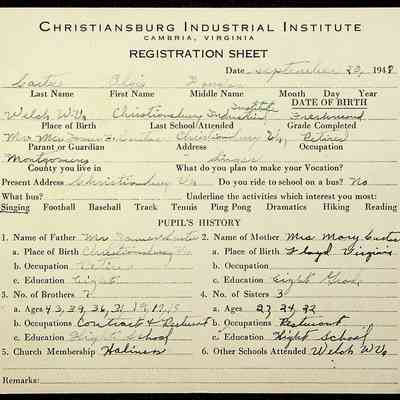 CHRISTIANSBURG INDUSTRIAL INSTITUTE
CAMBRIA, VIRGINIA
REGISTRATION SHEET
Date September 29, 1948
Last Name First Name Middle Name Month Day Year
DATE OF BIRTH
Welch W.Va Christiansburg Industrial Institute Freshmond
Place of Birth Last School Attended Grade Completed
Christiansburg Va, Retired
Parant or Guardian Address Occupation
Montgomery Singer
County you live in What do you plan to make your Vocation?
Present Address Christiansburg Va Do you ride to school on a bus? No
What bus? Underline the activities which interest you most:
Singing Football Baseball Track Tennis Ping Pong Dramatics Hiking Reading
PUPIL'S HISTORY
1. Name of Father Mr James 2. Name of Mother Mrs Mary
a. Place of Birth Christiansburg Va a. Place of Birth Floyd Virginia
b. Occupation Retired b. Occupation
c. Education Eight c. Education Eight Grad,
3. No. of Brothers 7 4. No. of Sisters 3
a. Ages 43, 39, 36, 31, 19, 17, 15 a. Ages 27, 24, 22
b. Occupations Contract & b. Occupations
c. Education Hight School c. Education Hight School
5. Church Membership Holiness 6. Other Schools Attended Welch W.Va
Remarks: